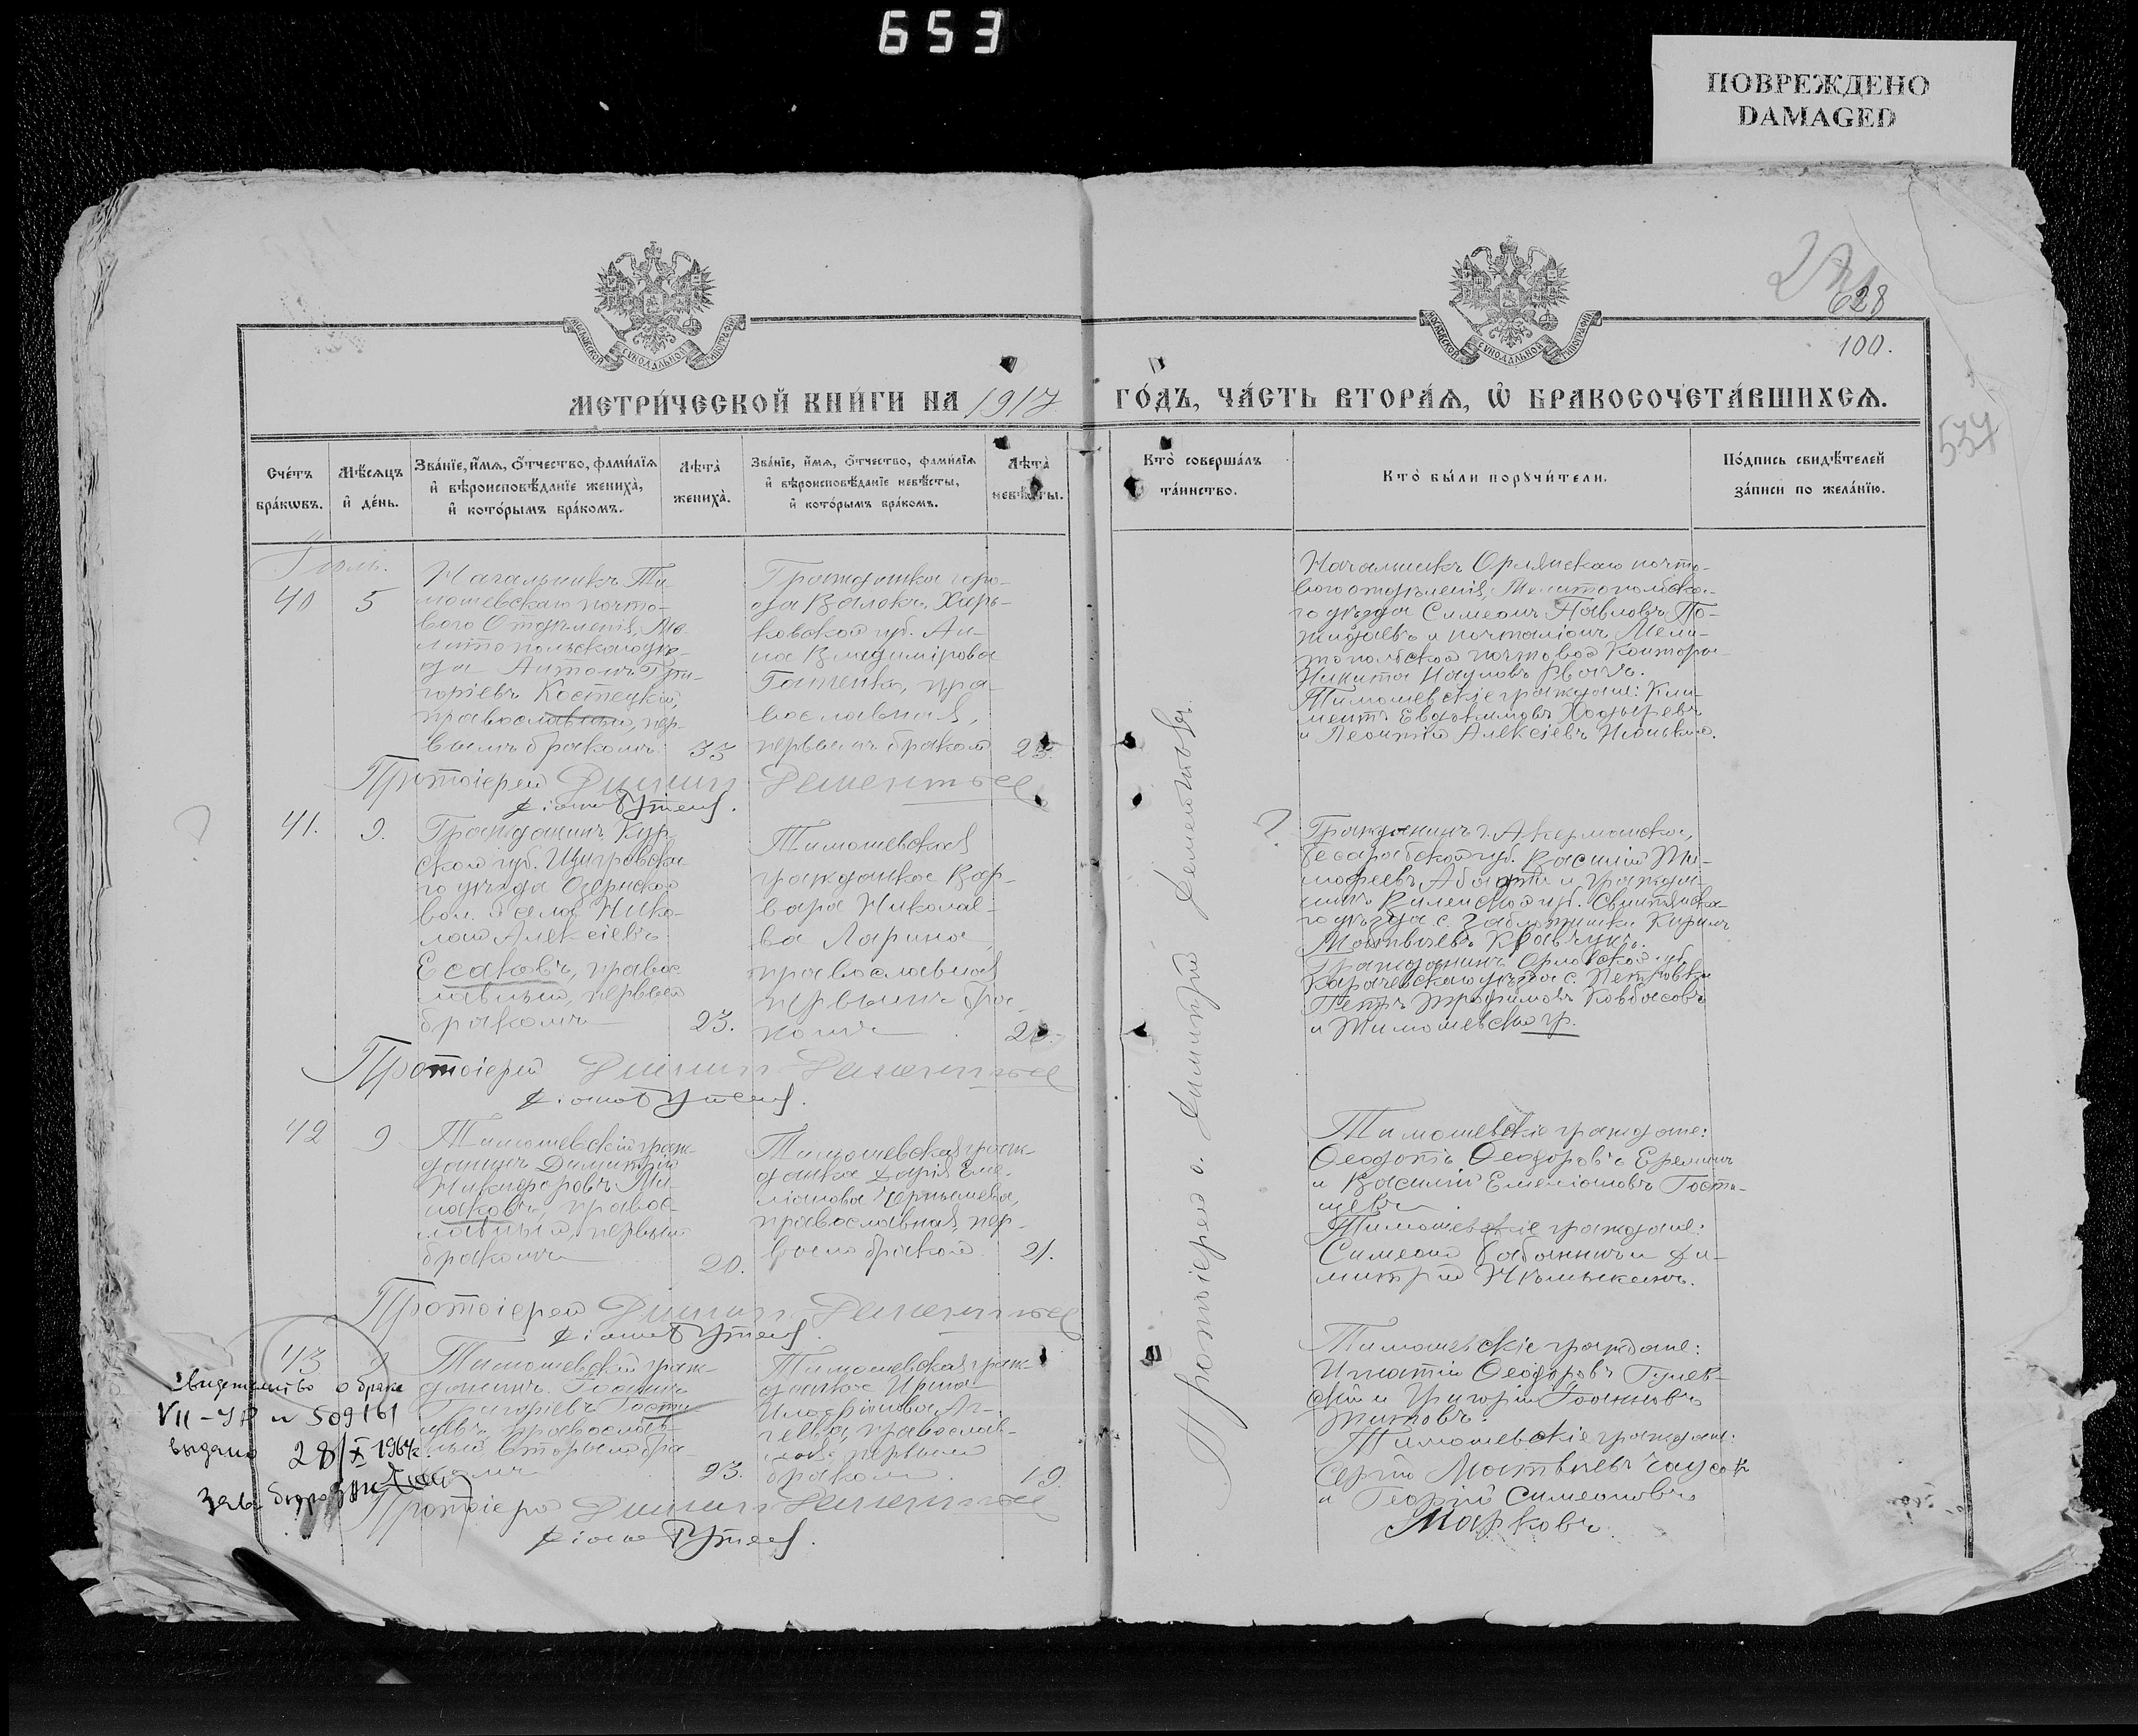 653
ПОВРЕЖДЕНО
DAMAGED
628
100.
537
МОСКОВСКОЙ СѴНОДАЛЬНОЙ ТИПОГРАФІИ
МОСКОВСКОЙ СѴНОДАЛЬНОЙ ТИПОГРАФІИ
МЕТРИ́ЧЕСКОЙ КНИ́ГИ НА 1917 ГО́ДЪ, ЧА́СТЬ ВТОРА́Я, Ѡ БРАКОСОЧЕТА́ВШИХСѦ.
Сче́тъ бра́кѡвъ.
Мѣ́сяцъ и де́нь.
Зва́нїе, и́мя, о́тчество, фами́лїя и вѣроисповѣ́данїе жениха̀, и кото́рымъ бра́комъ.
Лѣ́та жениха̀.
Зва́нїе, и́мя, о́тчество, фами́лїя и вѣроисповѣ́данїе невѣ́сты, и кото́рымъ бра́комъ.
Лѣ́та невѣ́сты.
Кто̀ соверша́лъ та́инство.
Кто̀ бы́ли порꙋчи́тели.
По́дпись свидѣ́телей за́писи по жела́нїю.
Іюль.
40
5
Начальникъ Ти-
мошевскаго почто-
вого Отдѣленія, Ме-
литопольскаго уѣз-
да Антонъ Гри-
горіевъ Костецкій,
православный, пер-
вымъ бракомъ.
33
Гражданка горо-
да Валокъ, Харь-
ковской губ. Ан-
на Владимірова
Гатенко, пра-
вославная,
первымъ бракомъ
Начальникъ Орлянскаго почто-
вого отдѣленія, Мелитопольска-
го уѣзда Симеонъ Павловъ По-
жидаевъ и почталіонъ Мели-
топольской почтовой Конторы
Никита Наумовъ Рвачъ.
Тимошевскіе граждане: Кли-
ментъ Евдокимовъ Ходыревъ
и Леонтій Алексіевъ
Протоіерей Димит. Дементьев
41.
9.
Гражданинъ Кур-
ской губ. Щигровска-
го уѣзда Озернской
вол. села Нико-
лай Алексіевъ
Есаковъ, правос-
лавный, первымъ
бракомъ
23.
Тимошевская
гражданка Вар-
вара Николае-
ва Ларина,
православная
первымъ бра-
комъ
Гражданинъ г. Акерманска,
Бесарабской губ. Василій Ти-
мофеевъ и гражда-
нинъ Виленской губ. Свитянска-
го уѣзда с. Кирилъ
Матвѣевъ Кравчукъ.
Гражданинъ Орловской губ.
Карачевскаго уѣзда с. Петровки
Петръ Трофимовъ Ковбасовъ
и Тимошевскій гр.
Протоіерей Димит. Дементьев
42
9
Тимошевскій граж-
данинъ Димитрій
Никифоровъ Ми-
наковъ, правос-
лавный, первымъ
бракомъ
20.
Тимошевская граж-
данка Дарія Еме-
ліанова Чернышева,
православная, пер-
вымъ бракомъ
21.
Тимошевскіе граждане:
Ѳеодотъ Ѳеодоровъ Ереминъ
и Василій Емеліановъ Гости-
щевъ
Тимошевскіе граждане:
Симеонъ и Ди-
митрій
Протоіерей Димит. Дементьев
43
9
Тимошевскій граж-
данинъ Іоаннъ
Григоріевъ Гости-
щевъ, православ-
ный, вторымъ бра-
комъ
23.
Тимошевская граж-
данка Ирина
первымъ
бракомъ
19
Тимошевскіе граждане:
Игнатій Ѳеодоровъ Гулев-
скій и Григорій Іоанновъ
Титовъ.
Тимошевскіе граждане:
Сергій Матвѣевъ
и Георгій Симеоновъ
Марковъ.
Протоіерей Димит. Дементьев
Свидетельство о браке
VII-УР № 509161
выдано 28/X 1964г.
Протоіерей о. Димитрій Дементьевъ.